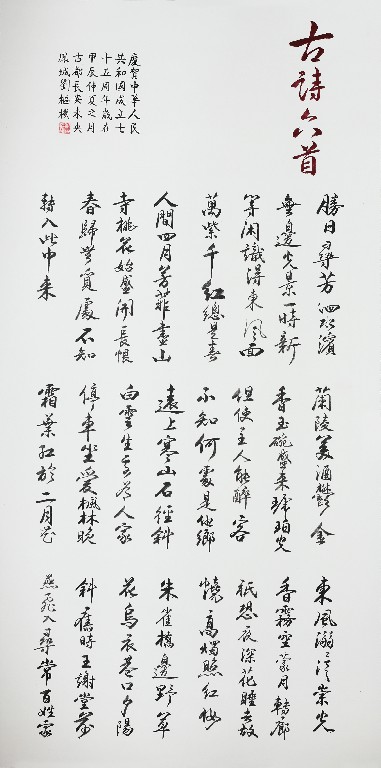 古詩六首
勝日尋芳泗水濱
無邊光景一時新
等闲識得東風面
萬紫千紅總是春
人間四月芳菲盡山
寺桃花始盛開長恨
春歸無覓處不知
轉入此中来
蘭陵美酒鬱金
香玉碗盛来琥珀光
但使主人能醉客
不知何處是他鄉
遠上寒山石徑斜
白雲生處有人家
停車坐愛楓林晚
霜葉紅於二月花
東風嫋嫋泛崇光
香霧空蒙月轉廊
衹恐夜深花睡去故
燒高燭照紅妝
朱雀橋邊野草
花烏衣巷口夕陽
斜舊時王謝堂前
燕飛入尋常百姓家
慶賀中華人民
共和國成立七
十五周年歲在
甲辰仲夏之月
古都長安未央
城劉